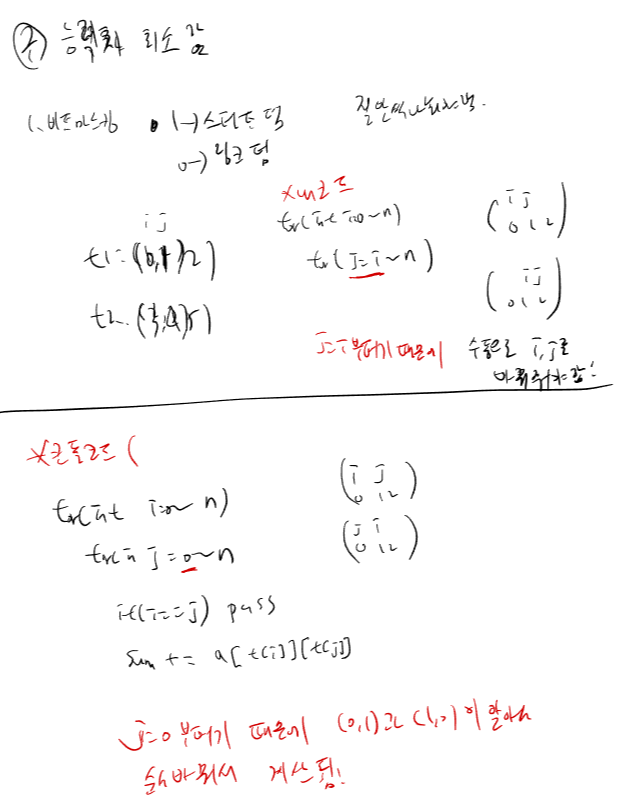 능력차 최소값
1. 비트마스킹 1→스타트 팀
0→링크 팀
i j
t1 = (0,1,2)
t2
*내코드
for(int i=0~n)
for(j=i~n)
(i j
0 1 2)
(i j
0 1 2)
j=i부터기 때문에 수동으로 i, j로
바꿔줘야함!
for(int i=0~n)
for(in j=0~n
if(i==j) pass
sum += a[t[i]][t[j]]
(i j
0 1 2)
(j i
0 1 2)
j=0부터기 때문에 (0,1)과 (1,0)이 알아서
순서바꿔서 계산됨!